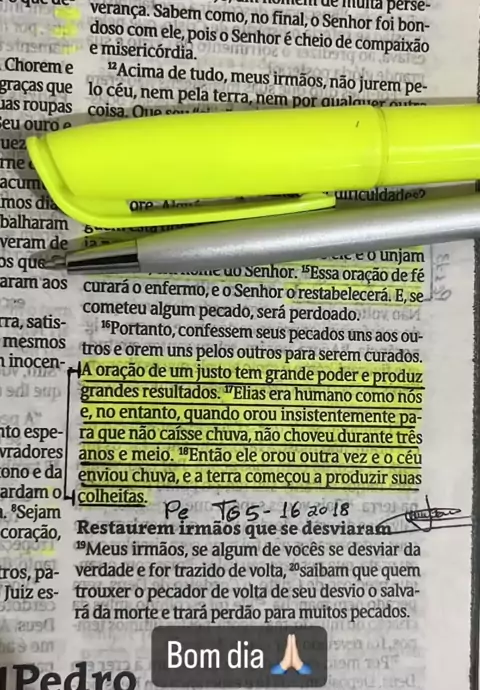 verança. Sabem como, no final, o Senhor foi bon-
doso com ele, pois o Senhor é cheio de compaixão
e misericórdia.
¹²Acima de tudo, meus irmãos, não jurem pe-
lo céu, nem pela terra, nem por qualquer outra
coisa. Que
dificuldades?
ore.
e o unjam
nome do Senhor. ¹⁵Essa oração de fé
curará o enfermo, e o Senhor o restabelecerá. E, se
cometeu algum pecado, será perdoado.
¹⁶Portanto, confessem seus pecados uns aos ou-
tros e orem uns pelos outros para serem curados.
A oração de um justo tem grande poder e produz
grandes resultados. ¹⁷Elias era humano como nós
e, no entanto, quando orou insistentemente pa-
ra que não caísse chuva, não choveu durante três
anos e meio. ¹⁸Então ele orou outra vez e o céu
enviou chuva, e a terra começou a produzir suas
colheitas.
Restaurem irmãos que se desviaram
¹⁹Meus irmãos, se algum de vocês se desviar da
verdade e for trazido de volta, ²⁰saibam que quem
trouxer o pecador de volta de seu desvio o salva-
rá da morte e trará perdão para muitos pecados.
Chorem e
graças que
uas roupas
eu ouro e
acum
mos dia
balharam
veram de
os que
aram aos
rra, satis-
mesmos
inocen-
nto espe-
vradores
ono e da
ardam o
⁹Sejam
coração,
tros, pa-
Juiz es-
Pedro
Bom dia 🙏🏻